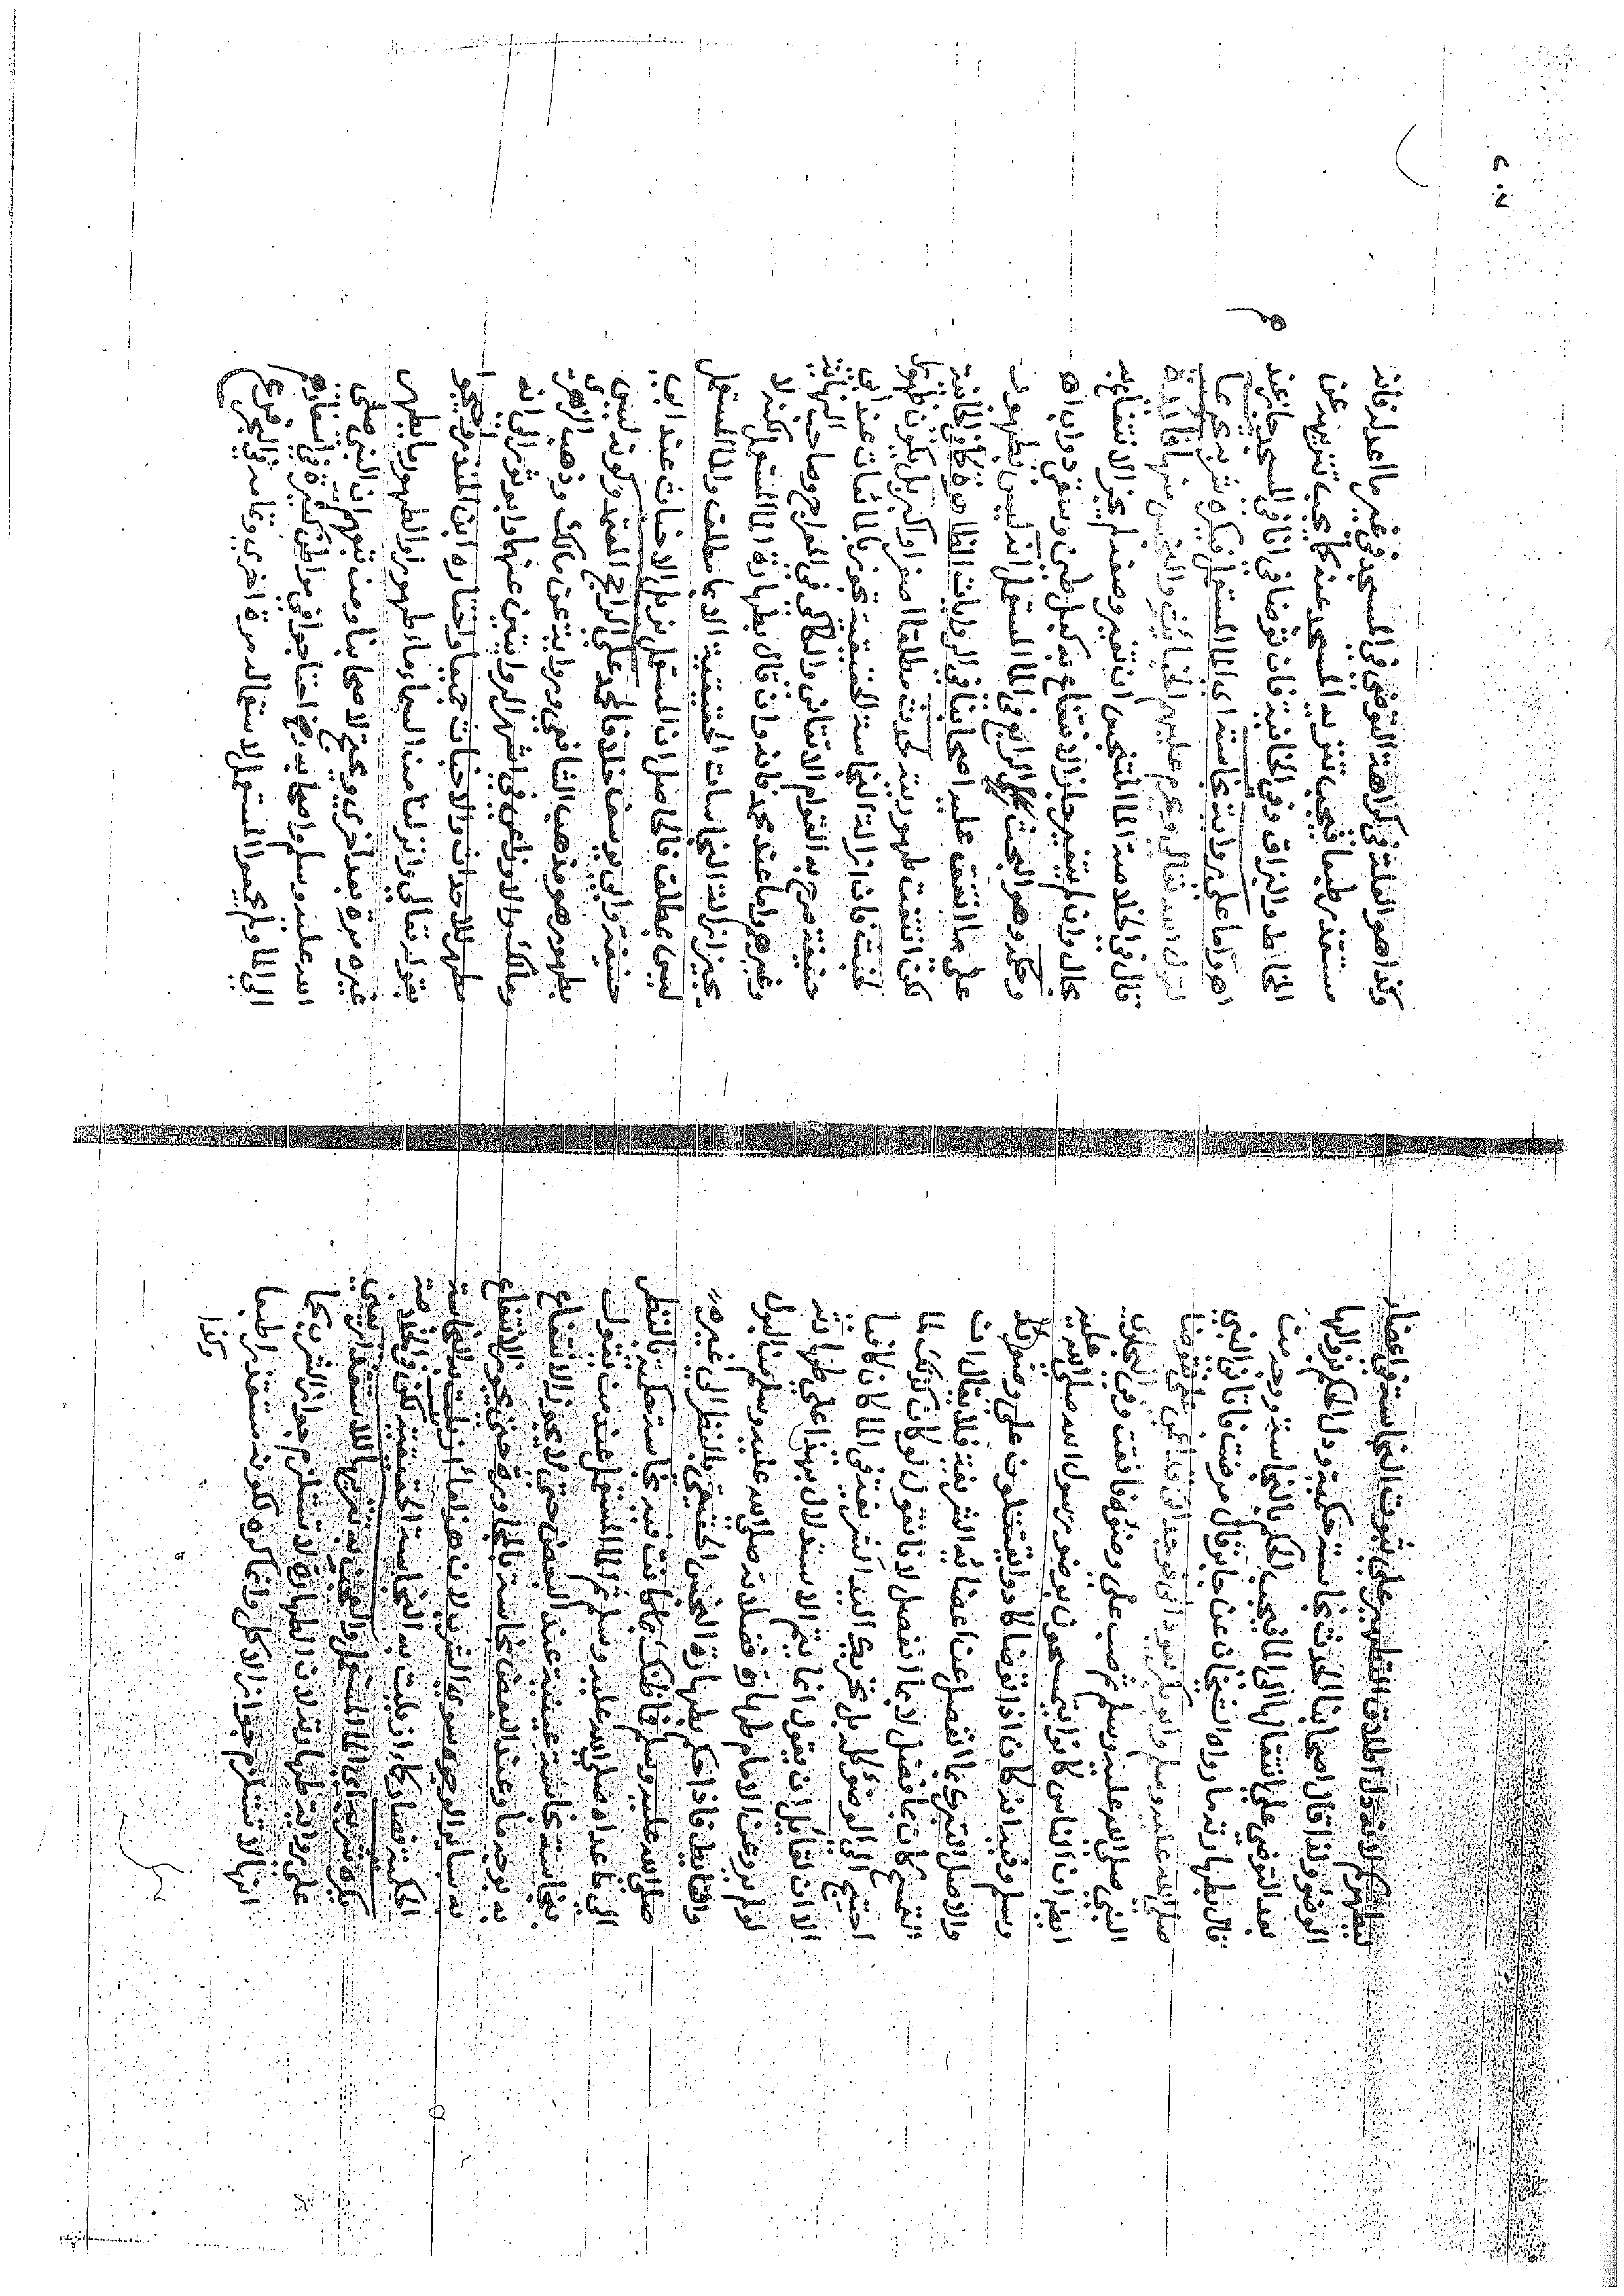 ليطهركم الاية دل اطلاق التطهير على ثبوت النجاسة في اعضاء
الوضوء ولذا قال اصحابنا الحدث نجاسة حكمية ودل الحكم بزوالها
بعد التوضي على انتقالها الى الماء فيجب الحكم بالنجاسة ووجه من
قال بطهارته ما رواه الشيخان عن جابر قال مرضت فاتاني النبي
صلى الله عليه وسلم وابو بكر يعوداني فوجداني قد اغمي علي فتوضا
النبي صلى الله عليه وسلم ثم صب علي وضوءه فافقت وفي البخاري
ايضا ان الناس كانوا يتمسحون بوضوء رسول الله صلى الله عليه
وسلم وفيه انه كان اذا توضا كادوا يقتتلون على وضوئه
والاصل التبري عما انفصل عن اعضائه الشريفة فلا يقال ان
التمسح كان بما فضل لا بما انفصل لانا نقول لو كان كذلك لما
احتيج الى الوضوء كله بل تحريك اليد الشريفة في الماء كان كافيا
الا ان لقائل ان يقول انما يتم الاستدلال بهذا على طهارته
لو لم يرو عن الامام طهارة فضلاته صلى الله عليه وسلم من البول
والغائط فاذا حكم بطهارة النجس الحقيقي بالنظر الى غيره
صلى الله عليه وسلم فما ظنك بما كانت فيه نجاسة حكمية بالنظر
الى ما عداه صلى الله عليه وسلم ثم الماء المستعمل عند من يقول
بنجاسته نجاسة عينية عند البعض حتى لا يجوز الانتفاع
به بوجه ما وعند البعض نجاسة بالمجاورة حتى يجوز الانتفاع
به سائر الوجوه سوى الشرب لان هذا ماء ازيلت به النجاسة
الحكمية فصار كماء ازيلت به النجاسة الحقيقية لكن في الخلاصة
يكره شربه اي الماء المستعمل والعجن به تنزيها للاستقذار يعني
على رواية طهارته لان الطهارة لا تستلزم جواز الشرب كما
انها لا تستلزم جواز الاكل وانما كره لكونه مستقذرا طبعا
وكذا
وكذا هو العلة في كراهة التوضي في المسجد في غير ما اعد له فانه
مستقذر طبعا فيجب تنزيه المسجد عنه كما يجب تنزيهه عن
المخاط والبزاق وفي الخانية فان توضا في اناء في المسجد جاز عند
هم واما على رواية نجاسته اي الماء المستعمل فيكره شربه تحريما
لقول الله تعالى ويحرم عليهم الخبائث والنجس منها
قال في الخلاصة الماء المتنجس ان تغير وصفه لم يجز الانتفاع به
بحال وان لم يتغير جاز الانتفاع به كبل طين وسقي دواب اه
وحكمه وهو البحث الرابع في الماء المستعمل انه ليس بطهور
على ما اتفق عليه اصحابنا في الروايات الظاهرة كما في الخانية
لكن انتفت طهوريته لحدث مطلقا اصغر او اكبر بل يكون طهورا
لخبث فان ازالة النجاسة الحقيقية تجوز بالمائعات عند ابي
حنيفة صرح به القوام الاتقاني والكاكي في المعراج وصاحب النهاية
وغيرهم واما عند محمد فانه وان قال بطهارة الماء المستعمل لكنه لا
يجيز ازالة النجاسات الحقيقية الا بماء مطلق والماء المستعمل
ليس بمطلق فالحاصل ان المستعمل مزيل للاخباث عند ابي
حنيفة وابي يوسف خلافا لمحمد على الراجح المعتمد وكونه ليس
بطهور هو مذهب الشافعي ورواية عن مالك وذهب الزهري
ومالك والاوزاعي في اشهر الروايتين عنهما وابو ثور الى انه
مطهر للاحداث والاخباث جميعا واختاره ابن المنذر
بقوله تعالى وانزلنا من السماء ماء طهورا والطهور ما يطهر
غيره مرة بعد اخرى ويحتج لاصحابنا ومن تبعهم ان النبي صلى
الله عليه وسلم واصحابه رضي الله عنهم احتاجوا في مواطن كثيرة في اسفارهم
الى الماء ولم يجمعوا المستعمل لاستعماله مرة اخرى وتمامه في البحر